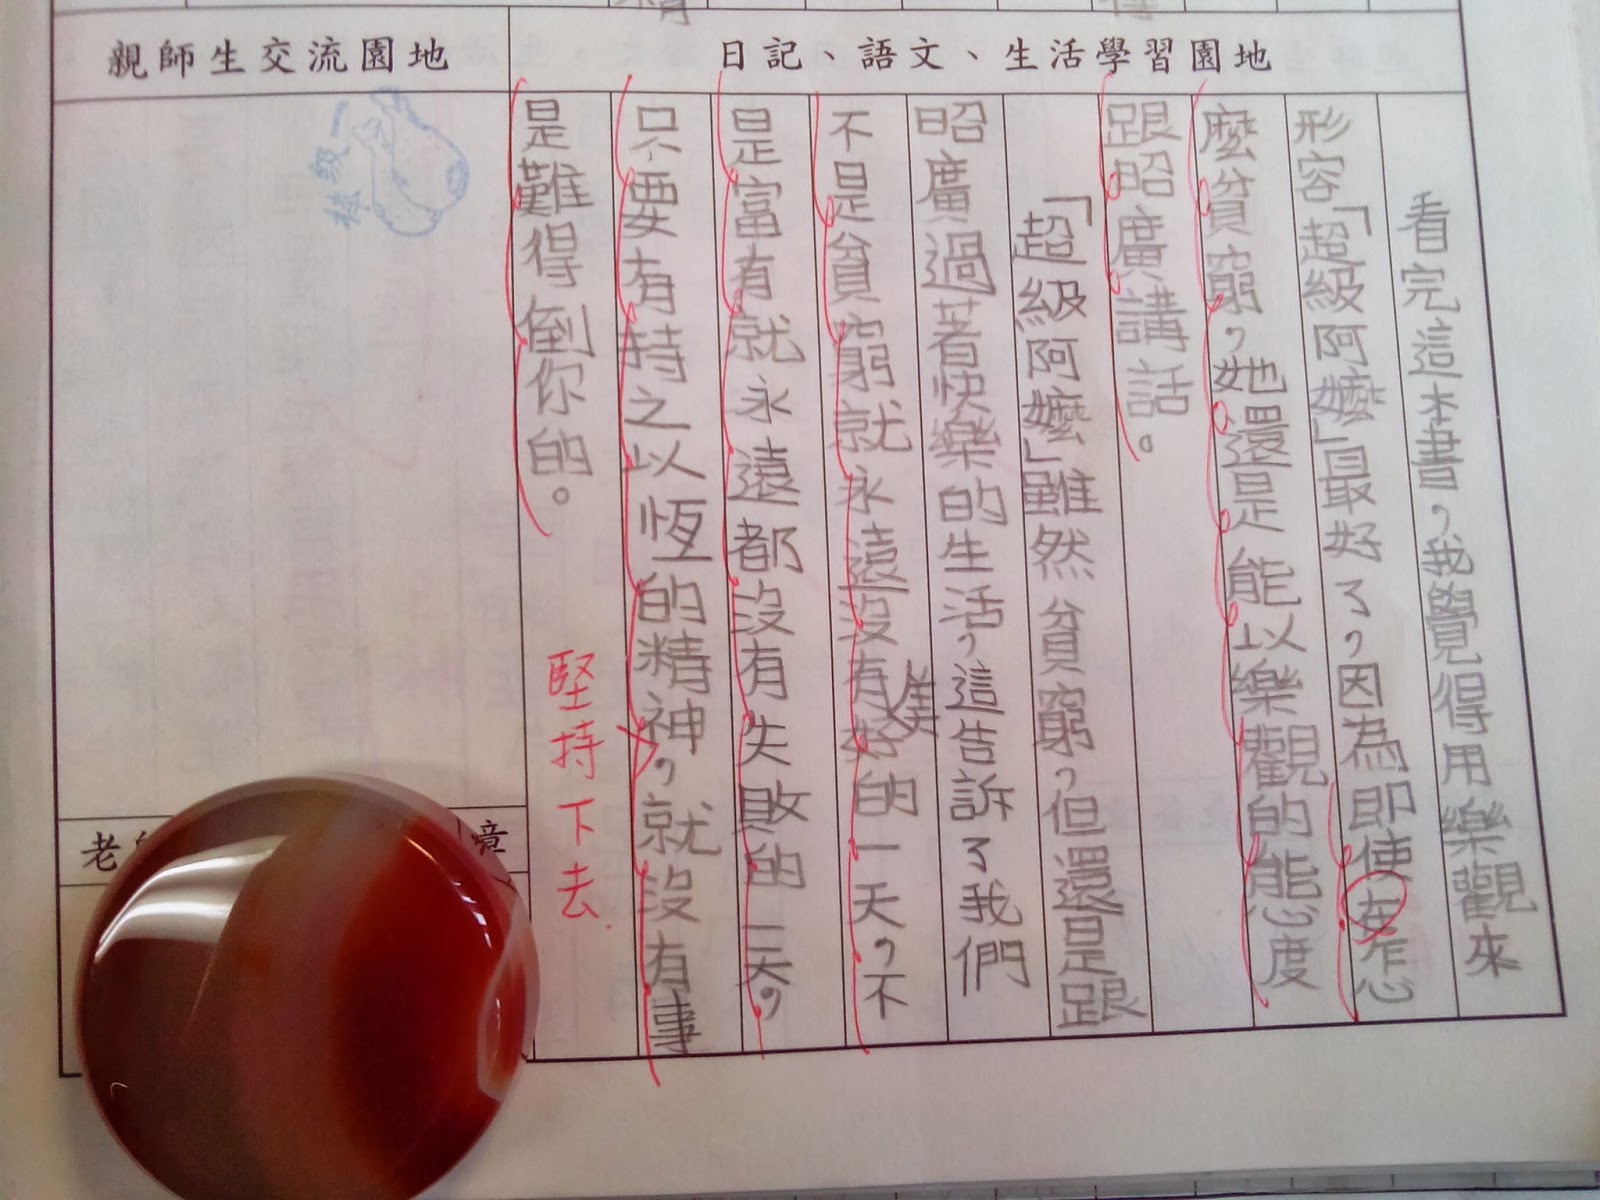 親師生交流園地
日記、語文、生活學習園地
看完這本書，我覺得用樂觀來
形容「超級阿嬤」最好了，因為即使在怎
麼貧窮，她還是能以樂觀的態度
跟昭廣講話。
「超級阿嬤」雖然貧窮，但還是跟
昭廣過著快樂的生活，這告訴了我們
不是貧窮就永遠沒有好的一天，不
是富有就永遠都沒有失敗的一天，
只要有持之以恆的精神，就沒有事
是難得倒你的。
堅持下去
老